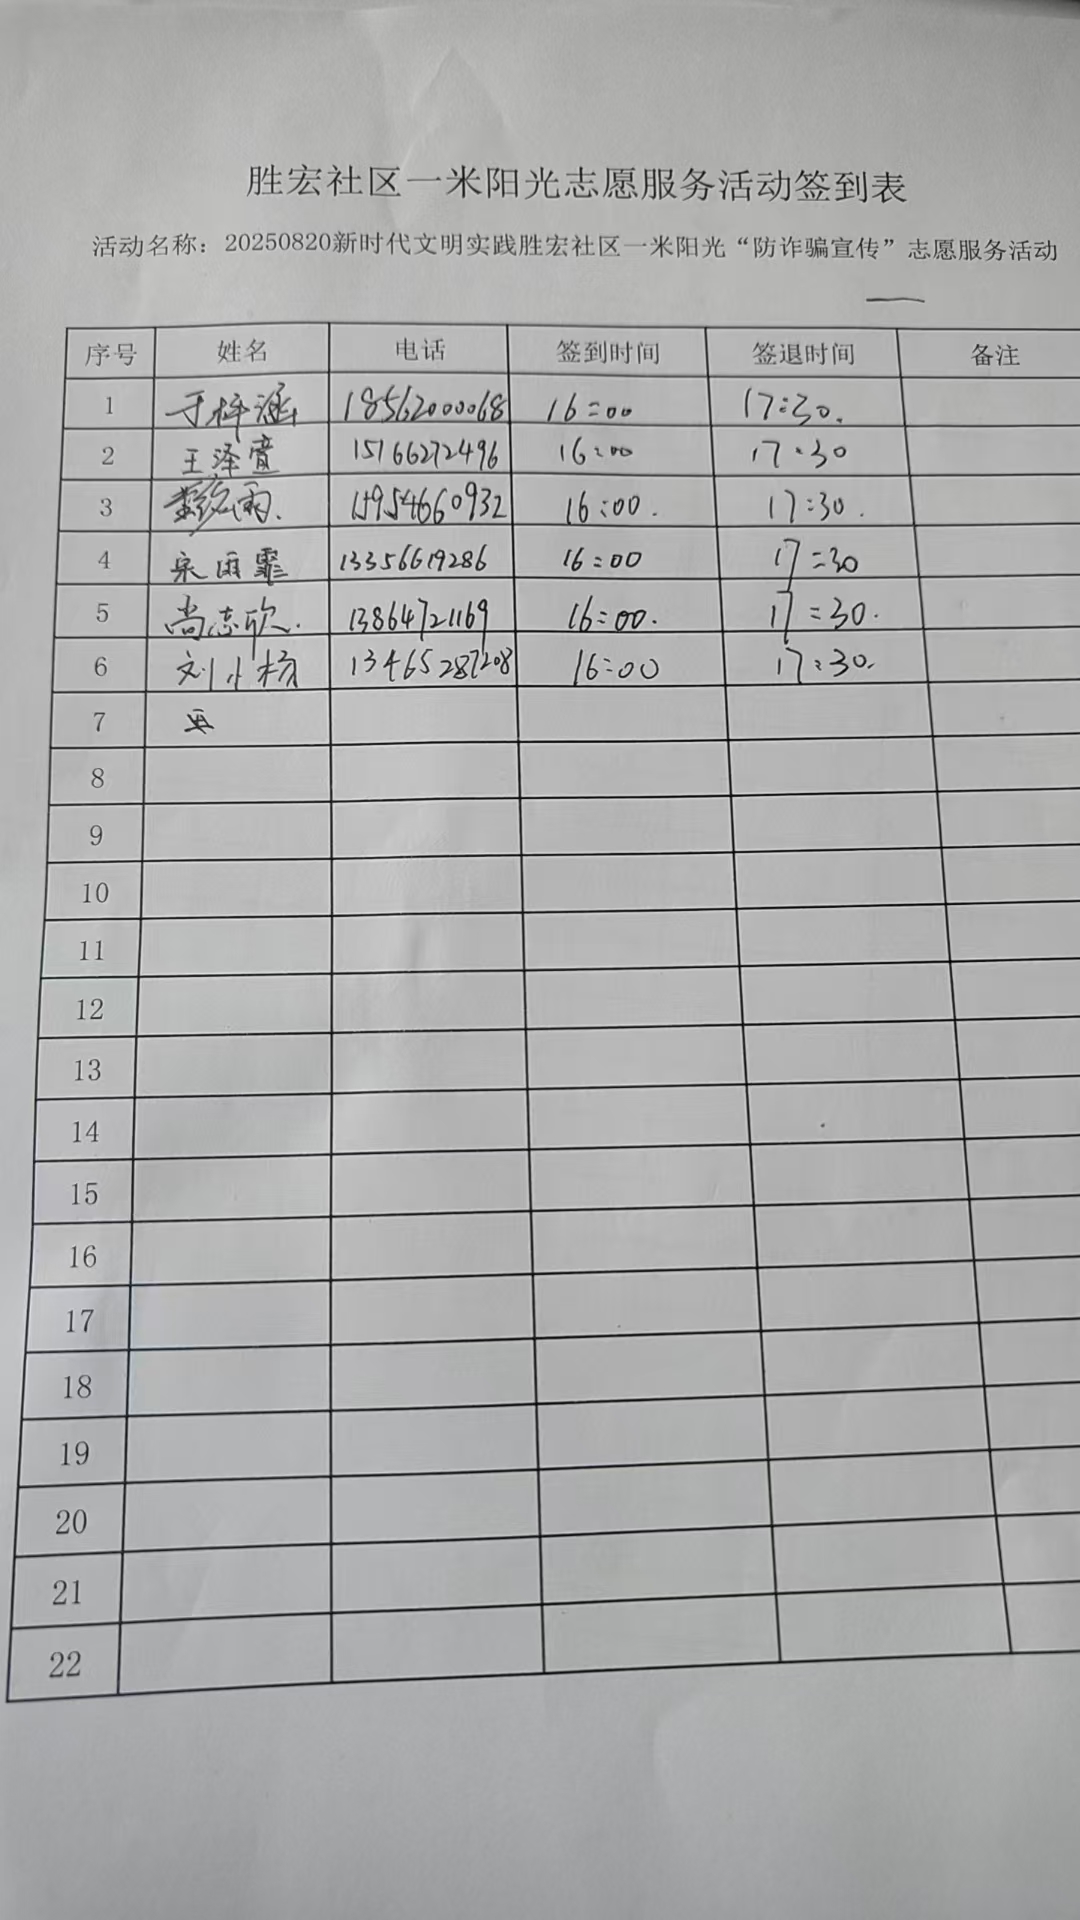 胜宏社区一米阳光志愿服务活动签到表
活动名称：20250820新时代文明实践胜宏社区一米阳光“防诈骗宣传”志愿服务活动
序号 姓名 电话 签到时间 签退时间 备注
1 于梓涵 18562000068 16:00 17:30.
2 王泽萱 15166272496 16:00 17:30
3 雨. 16:00. 17:30.
4 宋雨霏 13356619286 16:00 17:30
5 尚志欣. 13864721169 16:00. 17:30.
6 刘小杨 13465287208 16:00 17:30.
7
8
9
10
11
12
13
14
15
16
17
18
19
20
21
22